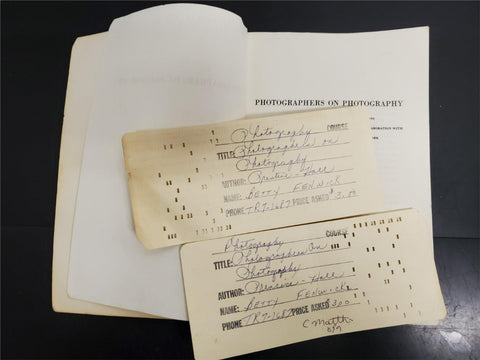 PHOTOGRAPHERS ON PHOTOGRAPHY
Photography COURSE
TITLE: Photographers on
Photography
AUTHOR: Prentice-Hall
NAME: BETTY FENWICK
PHONE TR7-1687 PRICE ASKED $3.00
Photography COURSE
TITLE: Photographers On
Photography
AUTHOR: Prentice-Hall
NAME: BETTY FENWICK
PHONE TR7-1687 PRICE ASKED $3.00